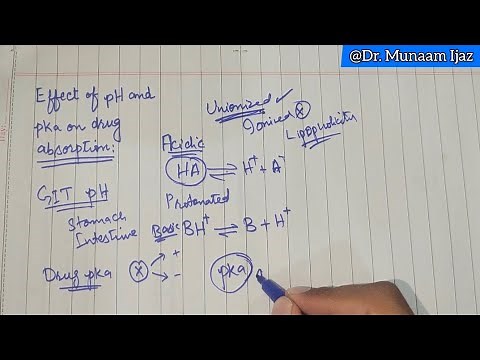 @Dr. Munaam Ijaz
Effect of pH and
pka on drug
absorption:
Unionized ✓
Ionized ⓧ
Lipophilicity
Acidic
HA ⇌ H⁺ + A⁻
Protonated
GIT pH
Stomach
Intestine
Basic BH⁺ ⇌ B + H⁺
Drug pka ⓧ → +
→ -
pka